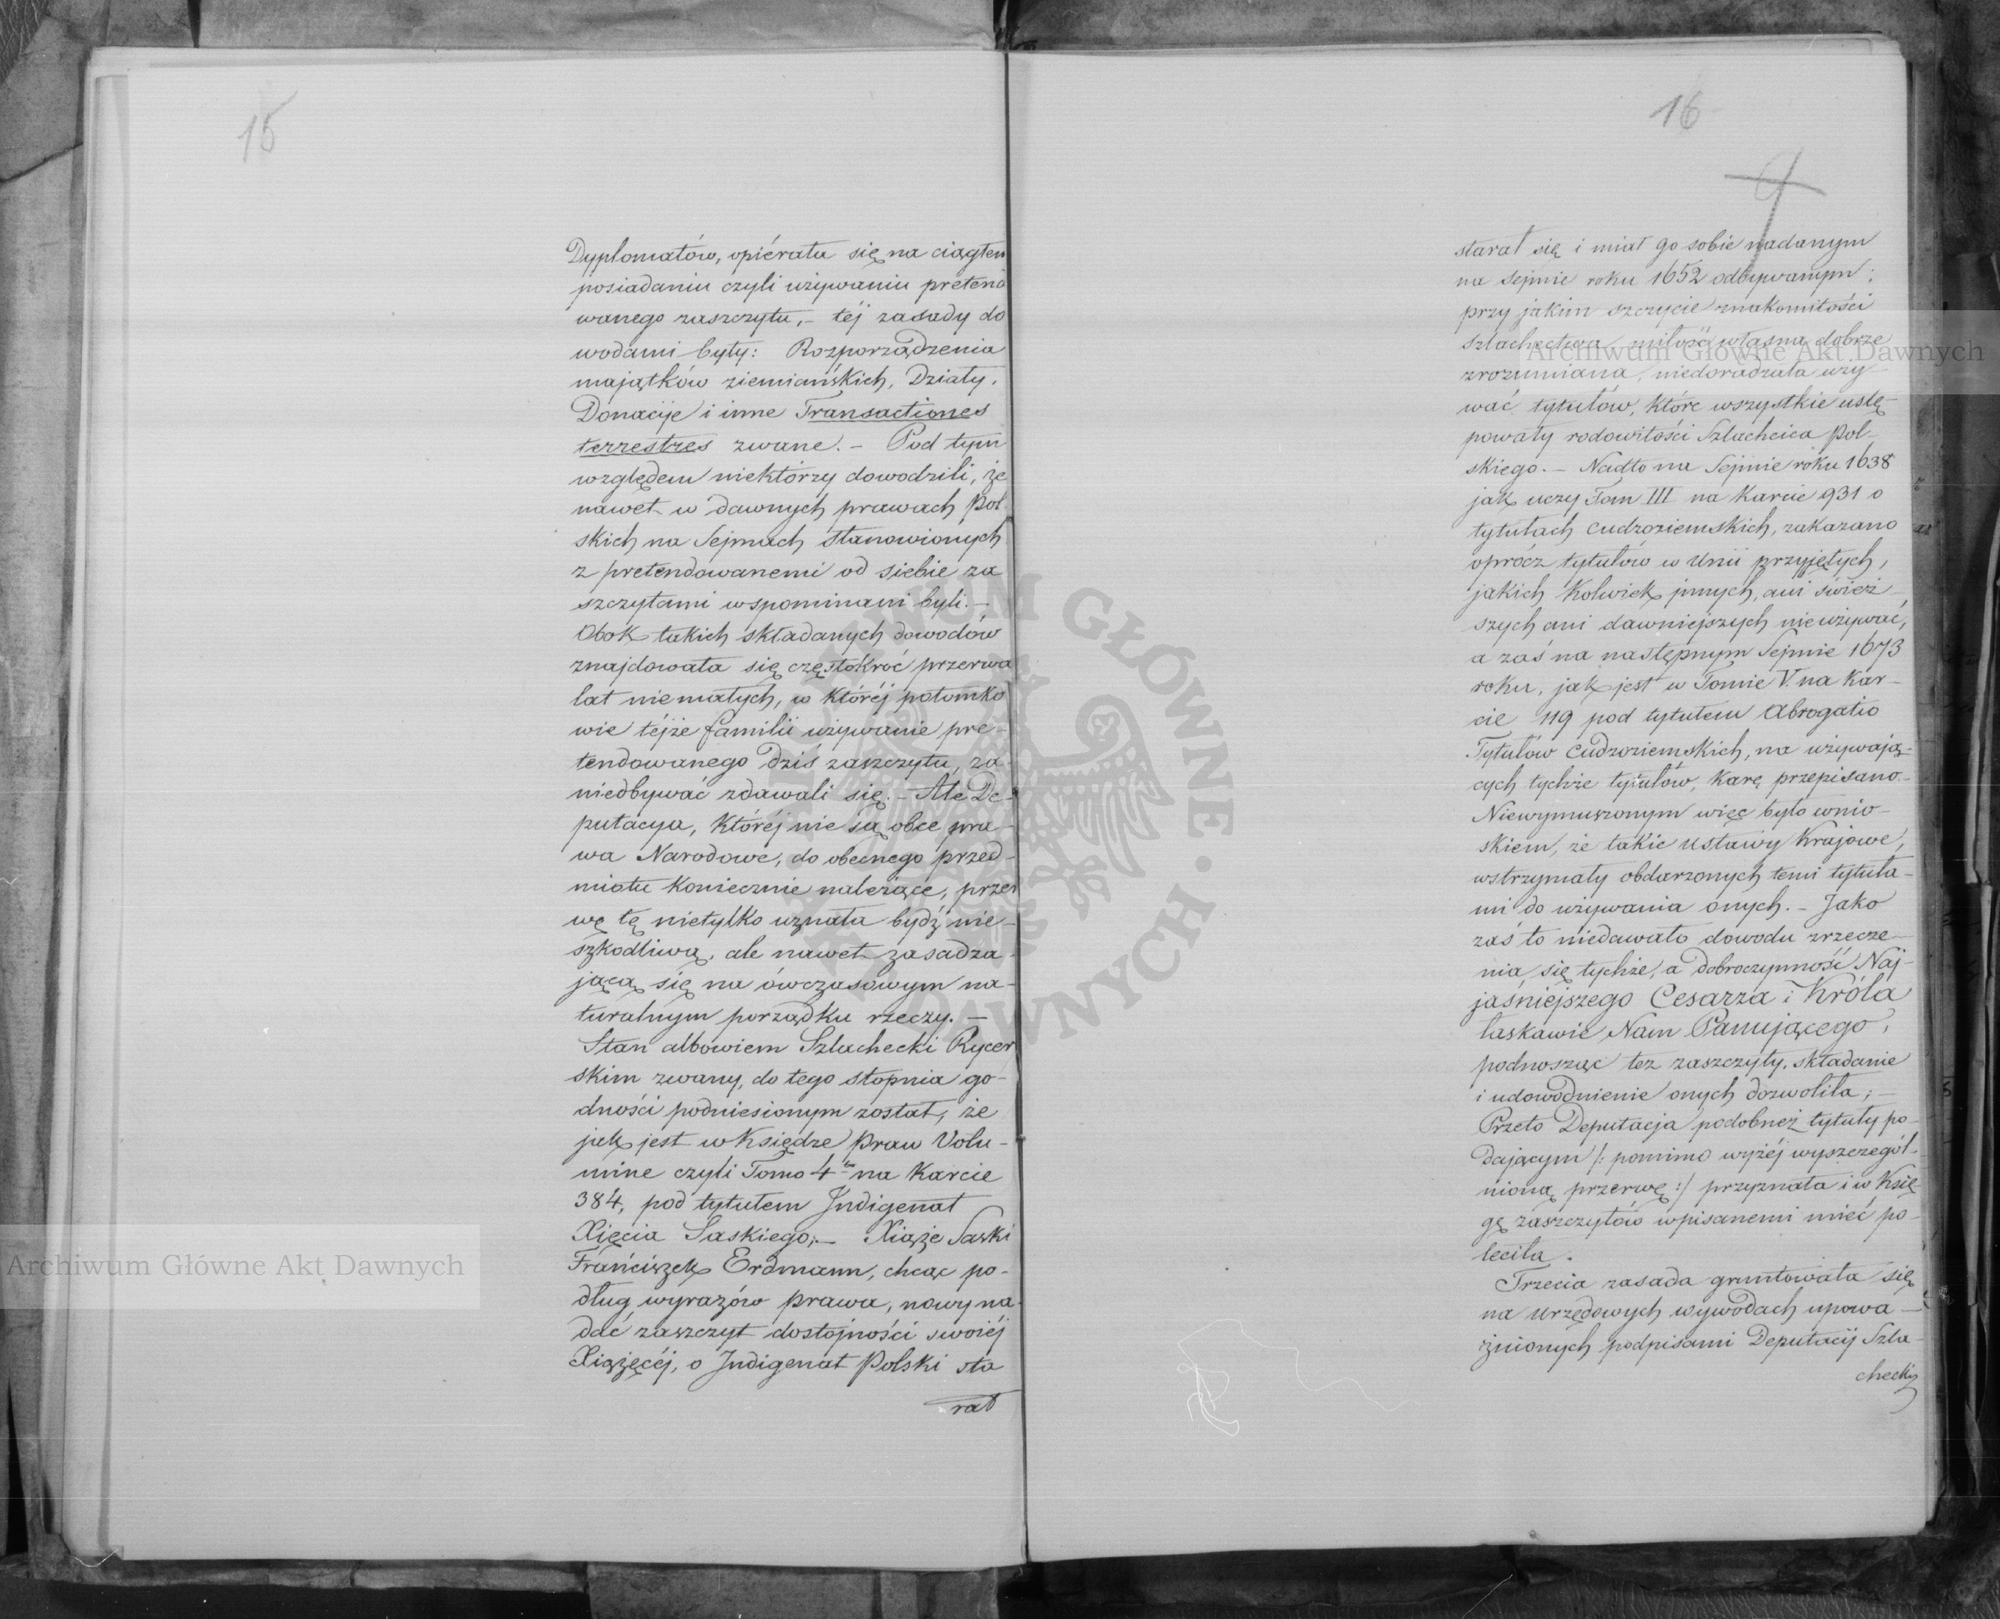 15
Dyplomatów, opiérała się na ciągłem
posiadaniu czyli używaniu pretend
wanego zaszczytu,– téj zasady do
wodami były: Rozporządzenia
majątków ziemiańskich, Działy,
Donacije i inne Transactiones
terrestres zwane.– Pod tym
względem niektórzy dowodzili, że
nawet w dawnych prawach Pol
skich na Sejmach stanowionych
z pretendowanemi od siebie za
szczytami wspominani byli.–
Obok takich składanych dowodów
znajdowała się częstokroć przerwa
lat niemałych, w któréj potomko
wie téjże familii używanie pre-
tendowanego dziś zaszczytu, za-
niedbywać zdawali się.– Ale De-
putacya, któréj nie są obce pra-
wa Narodowe, do obecnego przed-
miotu koniecznie należące, przer
wę tę nietylko uznała bydź nie-
szkodliwą, ale nawet zasadza-
jącą się na ówczasowym na-
turalnym porządku rzeczy.–
Stan albowiem Szlachecki Rycer
skim zwany, do tego stopnia go-
dności podniesionym został, że
jak jest w Księdze Praw Volu-
mine czyli Tomo 4 na karcie
384, pod tytułem Indigenat
Xięcia Saskiego;– Xiąże Saski
Franciszek Erdmann, chcąc po-
dług wyrazów prawa, nowy na-
dać zaszczyt dostojności swoiéj
Xiążęcéj, o Indigenat Polski sta
rał
16
starał się i miał go sobie nadanym
na sejmie roku 1652 odbywanym;
przy jakim szczycie znakomitości
szlachectwa, miłość własna dobrze
zrozumiana, niedoradzała uży
wać tytułów, które wszystkie ustę-
powały rodowitości Szlachcica Pol-
skiego.– Nadto na Sejmie roku 1638
jak uczy Tom III na karcie 931 o
tytułach cudzoziemskich, zakazano
oprócz tytułów w Unii przyjętych,
jakich kolwiek innych, ani śwież-
szych ani dawniejszych nieużywać,
a zaś na następnym Sejmie 1673
roku, jak jest w Tomie V. na kar-
cie 119 pod tytułem Abrogatio
Tytułów cudzoziemskich, na używają-
cych tychże tytułów, karę przepisano.
Niewymuszonym więc było wnio-
skiem, że takie ustawy krajowe,
wstrzymały obdarzonych temi tytuła-
mi do używania onych.– Jako
zaś to niedawało dowodu zrzecze-
nia się tychże, a dobroczynność Naj-
jaśniejszego Cesarza i Króla
łaskawie Nam Panującego,
podnosząc tez zaszczyty, składanie
i udowodnienie onych dozwoliła;–
Przeto Deputacja podobnéż tytuły po-
dającym /: pomimo wyżéj wyszczegól-
nioną przerwę :/ przyznała i w Ksie
gę zaszczytów wpisanemi mieć po-
leciła.
Trzecia zasada gruntowała się
na urzędowych wywodach upowa-
żnionych podpisami Deputacij Szla-
checkij
ARCHIWUM GŁÓWNE AKT DAWNYCH
Archiwum Główne Akt Dawnych
Archiwum Główne Akt Dawnych